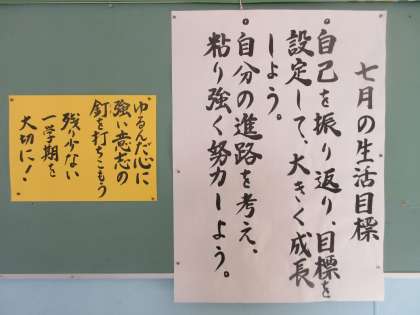 七月の生活目標
・自己を振り返り、目標を
設定して、大きく成長
しよう。
・自分の進路を考え、
粘り強く努力しよう。
ゆるんだ心に
強い意志の
釘を打ちこもう
残り少ない
一学期を
大切に!